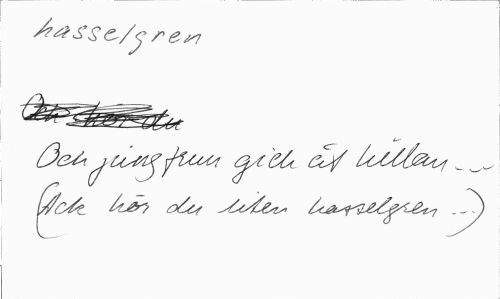 hasselgren
Och hör du
Och jungfrun gick åt killan...
(Ack hör du liten hasselgren...)